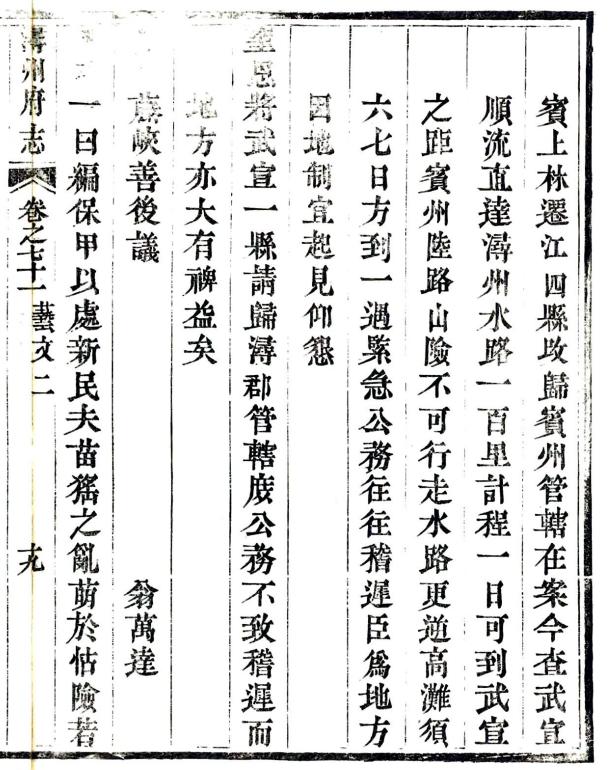 賓上林遷江四縣攺歸賓州管轄在案今查武宣
順流直達潯州水路一百里計程一日可到武宣
之距賓州陸路山險不可行走水路更逆高灘須
六七日方到一遇緊急公務往往稽遲臣爲地方
因地制宜起見仰懇
聖恩將武宣一縣請歸潯郡管轄庶公務不致稽遲而
地方亦大有裨益矣
藤峽善後議 翁萬達
一曰編保甲以處新民夫苗猺之亂萌於怙險若
潯州府志 卷之七十一 藝文二 十九